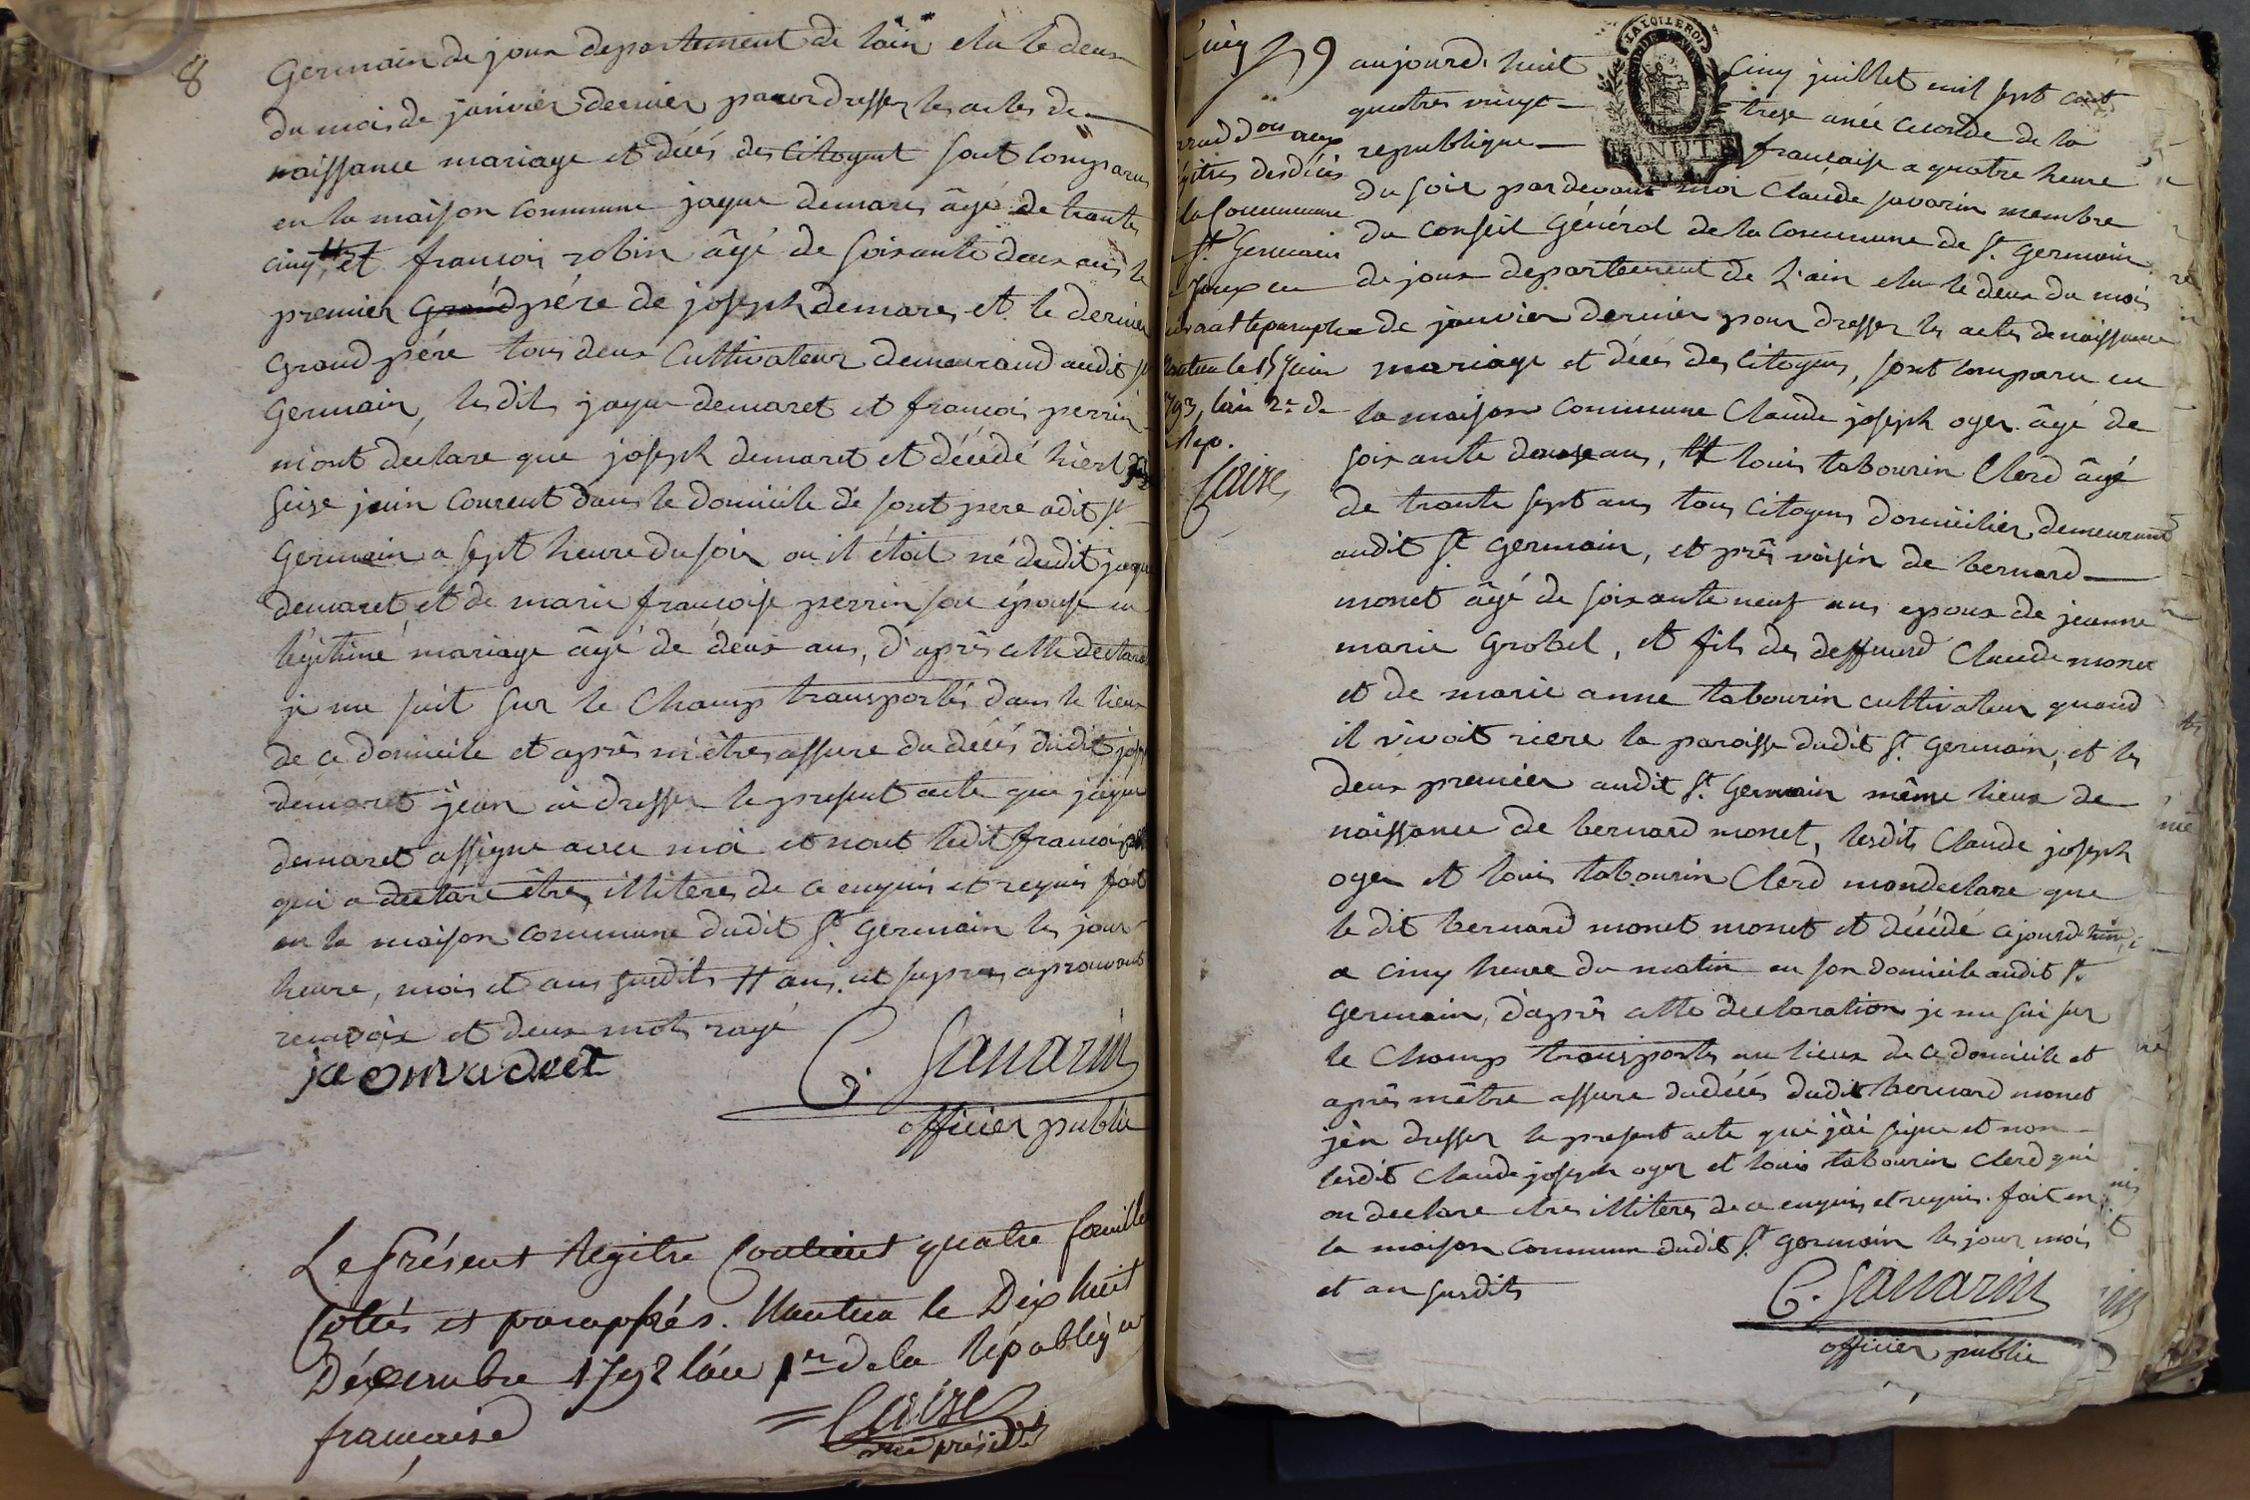 8
Germain de joux departement de lain elu le deux
du mois de janvier dernier pour dresser les actes de
naissance mariage et décés des citoyent sont comparus
en la maison commune jaque demares âgé de trante
cinq # et francois robin âgé de soixante deux ans le
premier grand pére de joseph demares et le dernier
grand pére tous deux cultivateur demeurand audit st
Germain, lesdits jaque demaret et francois perrin
mont declare que joseph demaret et décédé hier
seize juin courent dans le domicile de sont pere adit st
Germain a sept heure du soir ou il étoit né dudit jaque
demaret et de marie francoise perrin son épouse en
légitime mariage âgé de deux ans, d'aprês cette declara
je me suit sur le champ transportés dans le lieux
de ce domicile et aprês m'êtres assure du décés dudit jose
demaret jean ai dresser le present acte que jaque
demaret assigne avec moi et nont ledit francois
qui a declare êtres illiteres de ce enquis et requis fait
en la maison commune dudit st Germain les jour
heure, mois et ans susdits # ans et supra aprouvant
renvoix et deux mots rayé
C. Savarin
officier public
Le présent Regitre Contient quatre feuille
Cottés et paraphés. Nantua le Dix huit
Décembre 1792 l'an 1er de la Republiq
francaise
Caire
vice présidt
Cinq
aux
gitres desdécés
la Commune
st Germain
Joux en
le paraphe
Nantua le 15 juin
793, l'an 2e de
Rep.
Caire
9 aujourd. huit cinq juillet mil sept cent
quatres vingt treze anée seconde de la
republique francaise a quatre heure
du soir pardevant moi Claude savarin membre
du conseil Général de la commune de st. Germain
de joux departement de L'ain elu le deux du mois
de janvier dernier pour dresser les actes de naissance
mariage et décés des citoyens, sont comparu en
la maison commune Claude joseph oyer âgé de
soixante douze ans, et louis tabourin Clerd âgé
de trante sept ans tous citoyens domicilier demeurant
audit st Germain, et prês voisin de bernard
monet âgé de soixante neuf ans epoux de jeanne
marie grobel, et fils des deffuerd Claude monet
et de marie anne tabourin cultivateur quand
il vivoit riere la paroisse dudit st. Germain, et les
deux premier audit st. Germain même lieux de
naissance de bernard monet, lesdits Claude joseph
oyer et louis tabourin Clerd mondeclare que
le dit bernard monet monet et décédé cejourd'hui
a cinq heure du matin en son domicile audit st.
Germain, d'aprês cette declaration je me sui sur
le champ transportes au lieux de ce domicile et
aprês mêtre assure dudécés dudit bernard monet
jên dresser le present acte que j'ài signe et non
lesdit Claude joseph oyer et louis tabourin Clerd qui
on declare etres illiteres de ce enquis et requis. fait en
la maison commune dudit st Germain les jour mois
et an susdits
C. Savarin
officier public